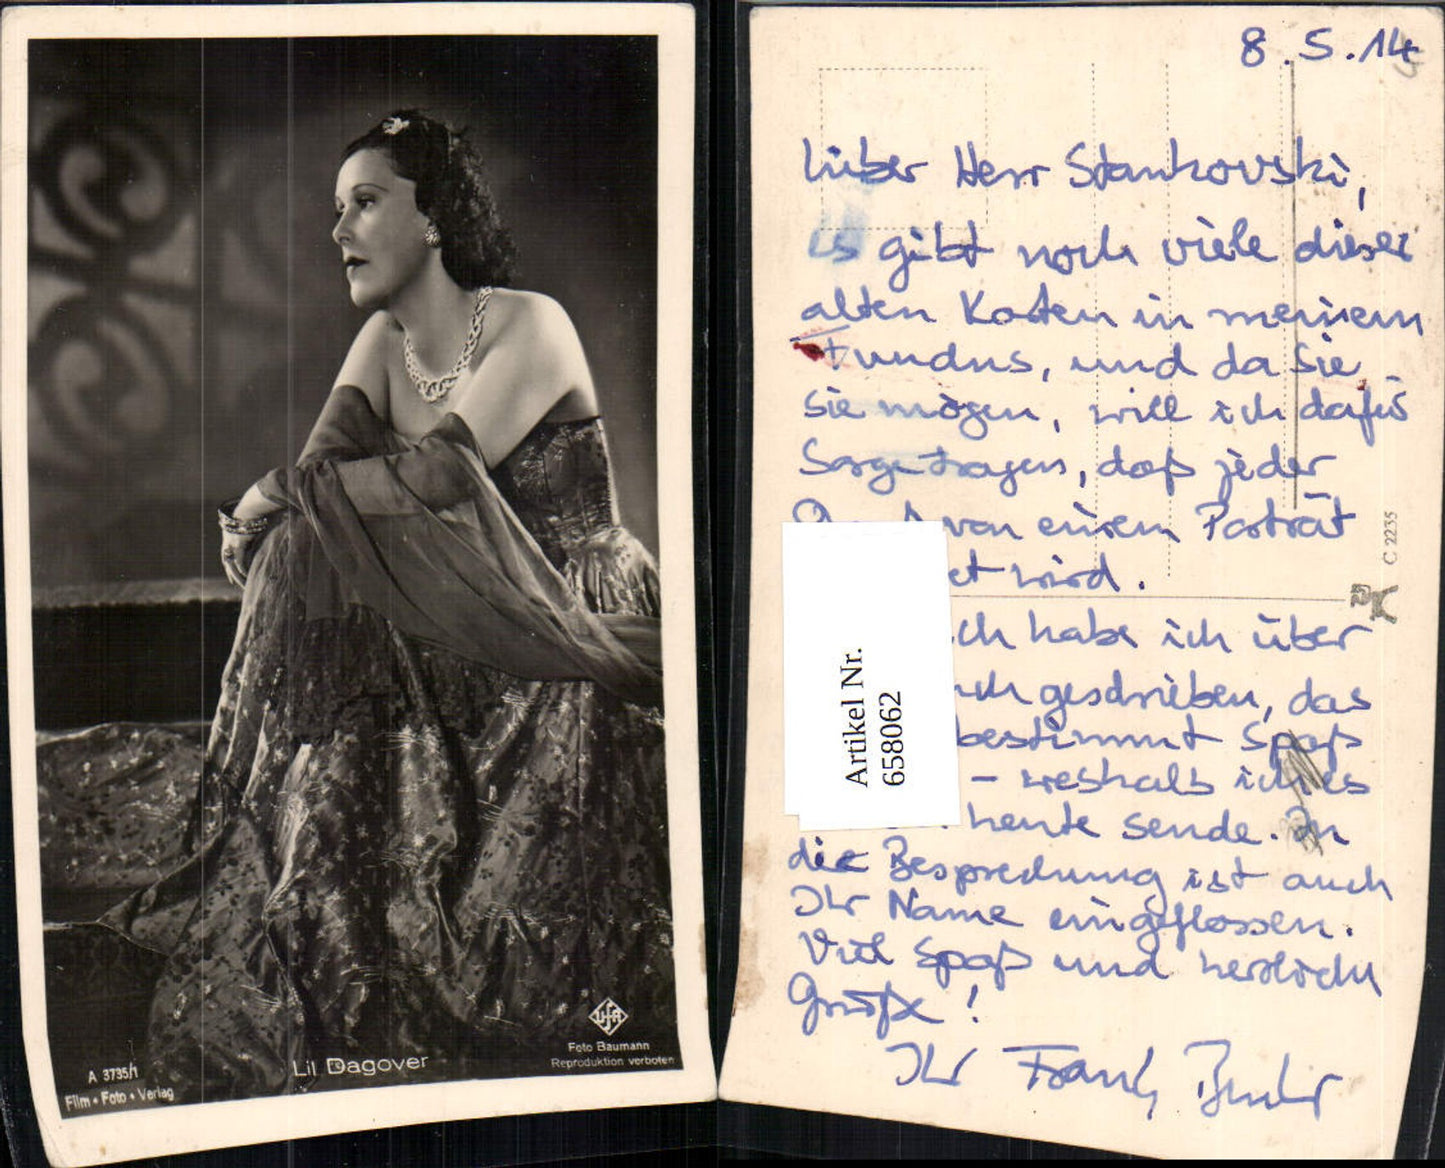 ufa
Foto Baumann
Reproduktion verboten
Lil Dagover
A 3735/1
Film • Foto • Verlag
8.5.14
Lieber Herr Stankovski,
es gibt noch viele dieser
alten Karten in meinem
Fundus, und da Sie
sie mögen, will ich dafür
Sorge tragen, daß jeder
von einem Porträt
wird.
habe ich über
geschrieben, das
bestimmt Spaß
– weshalb ich es
heute sende. In
die Besprechung ist auch
Ihr Name eingeflossen.
Viel Spaß und herzliche
Grüße!
Ihr Frank
C 2235
Artikel Nr.
658062